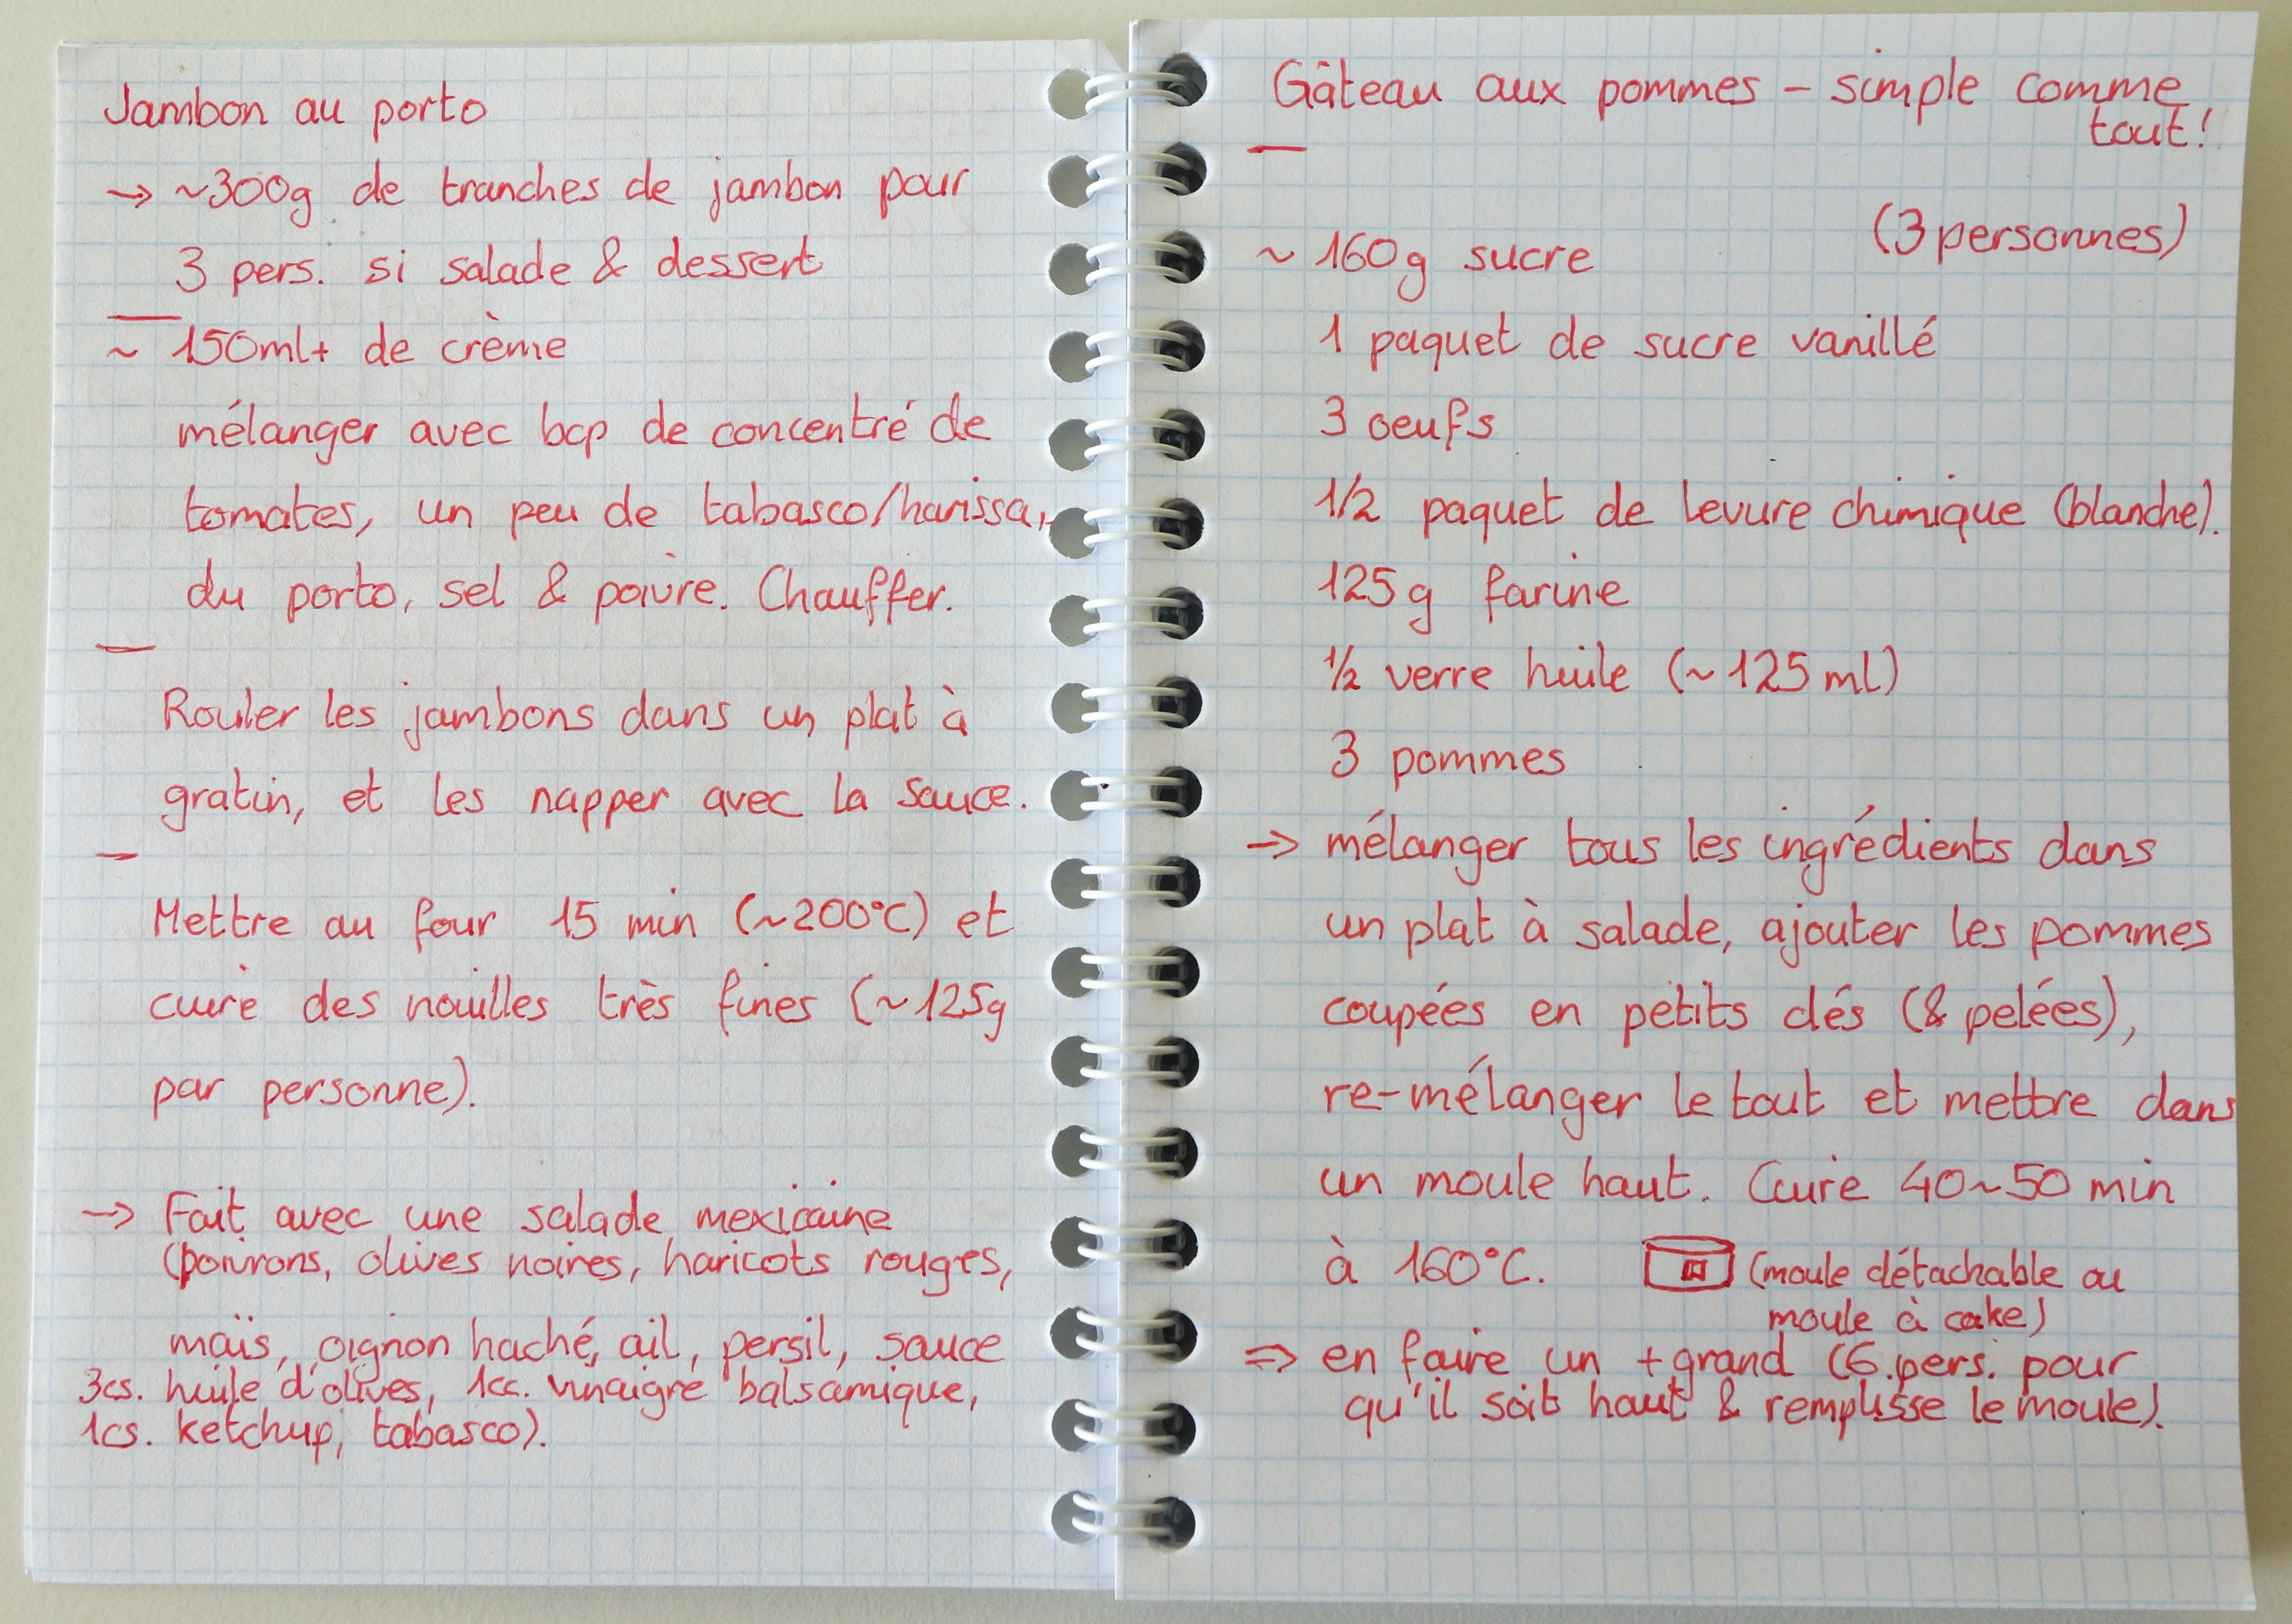 Jambon au porto
→ ~300g de tranches de jambon pour
3 pers. si salade & dessert
~ 150ml+ de crème
mélanger avec bcp de concentré de
tomates, un peu de tabasco/harissa,
du porto, sel & poivre. Chauffer.
Rouler les jambons dans un plat à
gratin, et les napper avec la sauce.
Mettre au four 15 min (~200°C) et
cuire des nouilles très fines (~125g
par personne).
→ Fait avec une salade mexicaine
(poivrons, olives noires, haricots rouges,
maïs, oignon haché, ail, persil, sauce
3cs. huile d'olives, 1cc. vinaigre balsamique,
1cs. ketchup, tabasco).
Gâteau aux pommes - simple comme
tout!
(3 personnes)
~ 160g sucre
1 paquet de sucre vanillé
3 oeufs
1/2 paquet de levure chimique (blanche).
125g farine
1/2 verre huile (~125ml)
3 pommes
→ mélanger tous les ingrédients dans
un plat à salade, ajouter les pommes
coupées en petits dés (& pelées),
re-mélanger le tout et mettre dans
un moule haut. Cuire 40~50 min
à 160°C. (moule détachable ou
moule à cake)
⇒ en faire un + grand (6 pers. pour
qu'il soit haut & remplisse le moule).